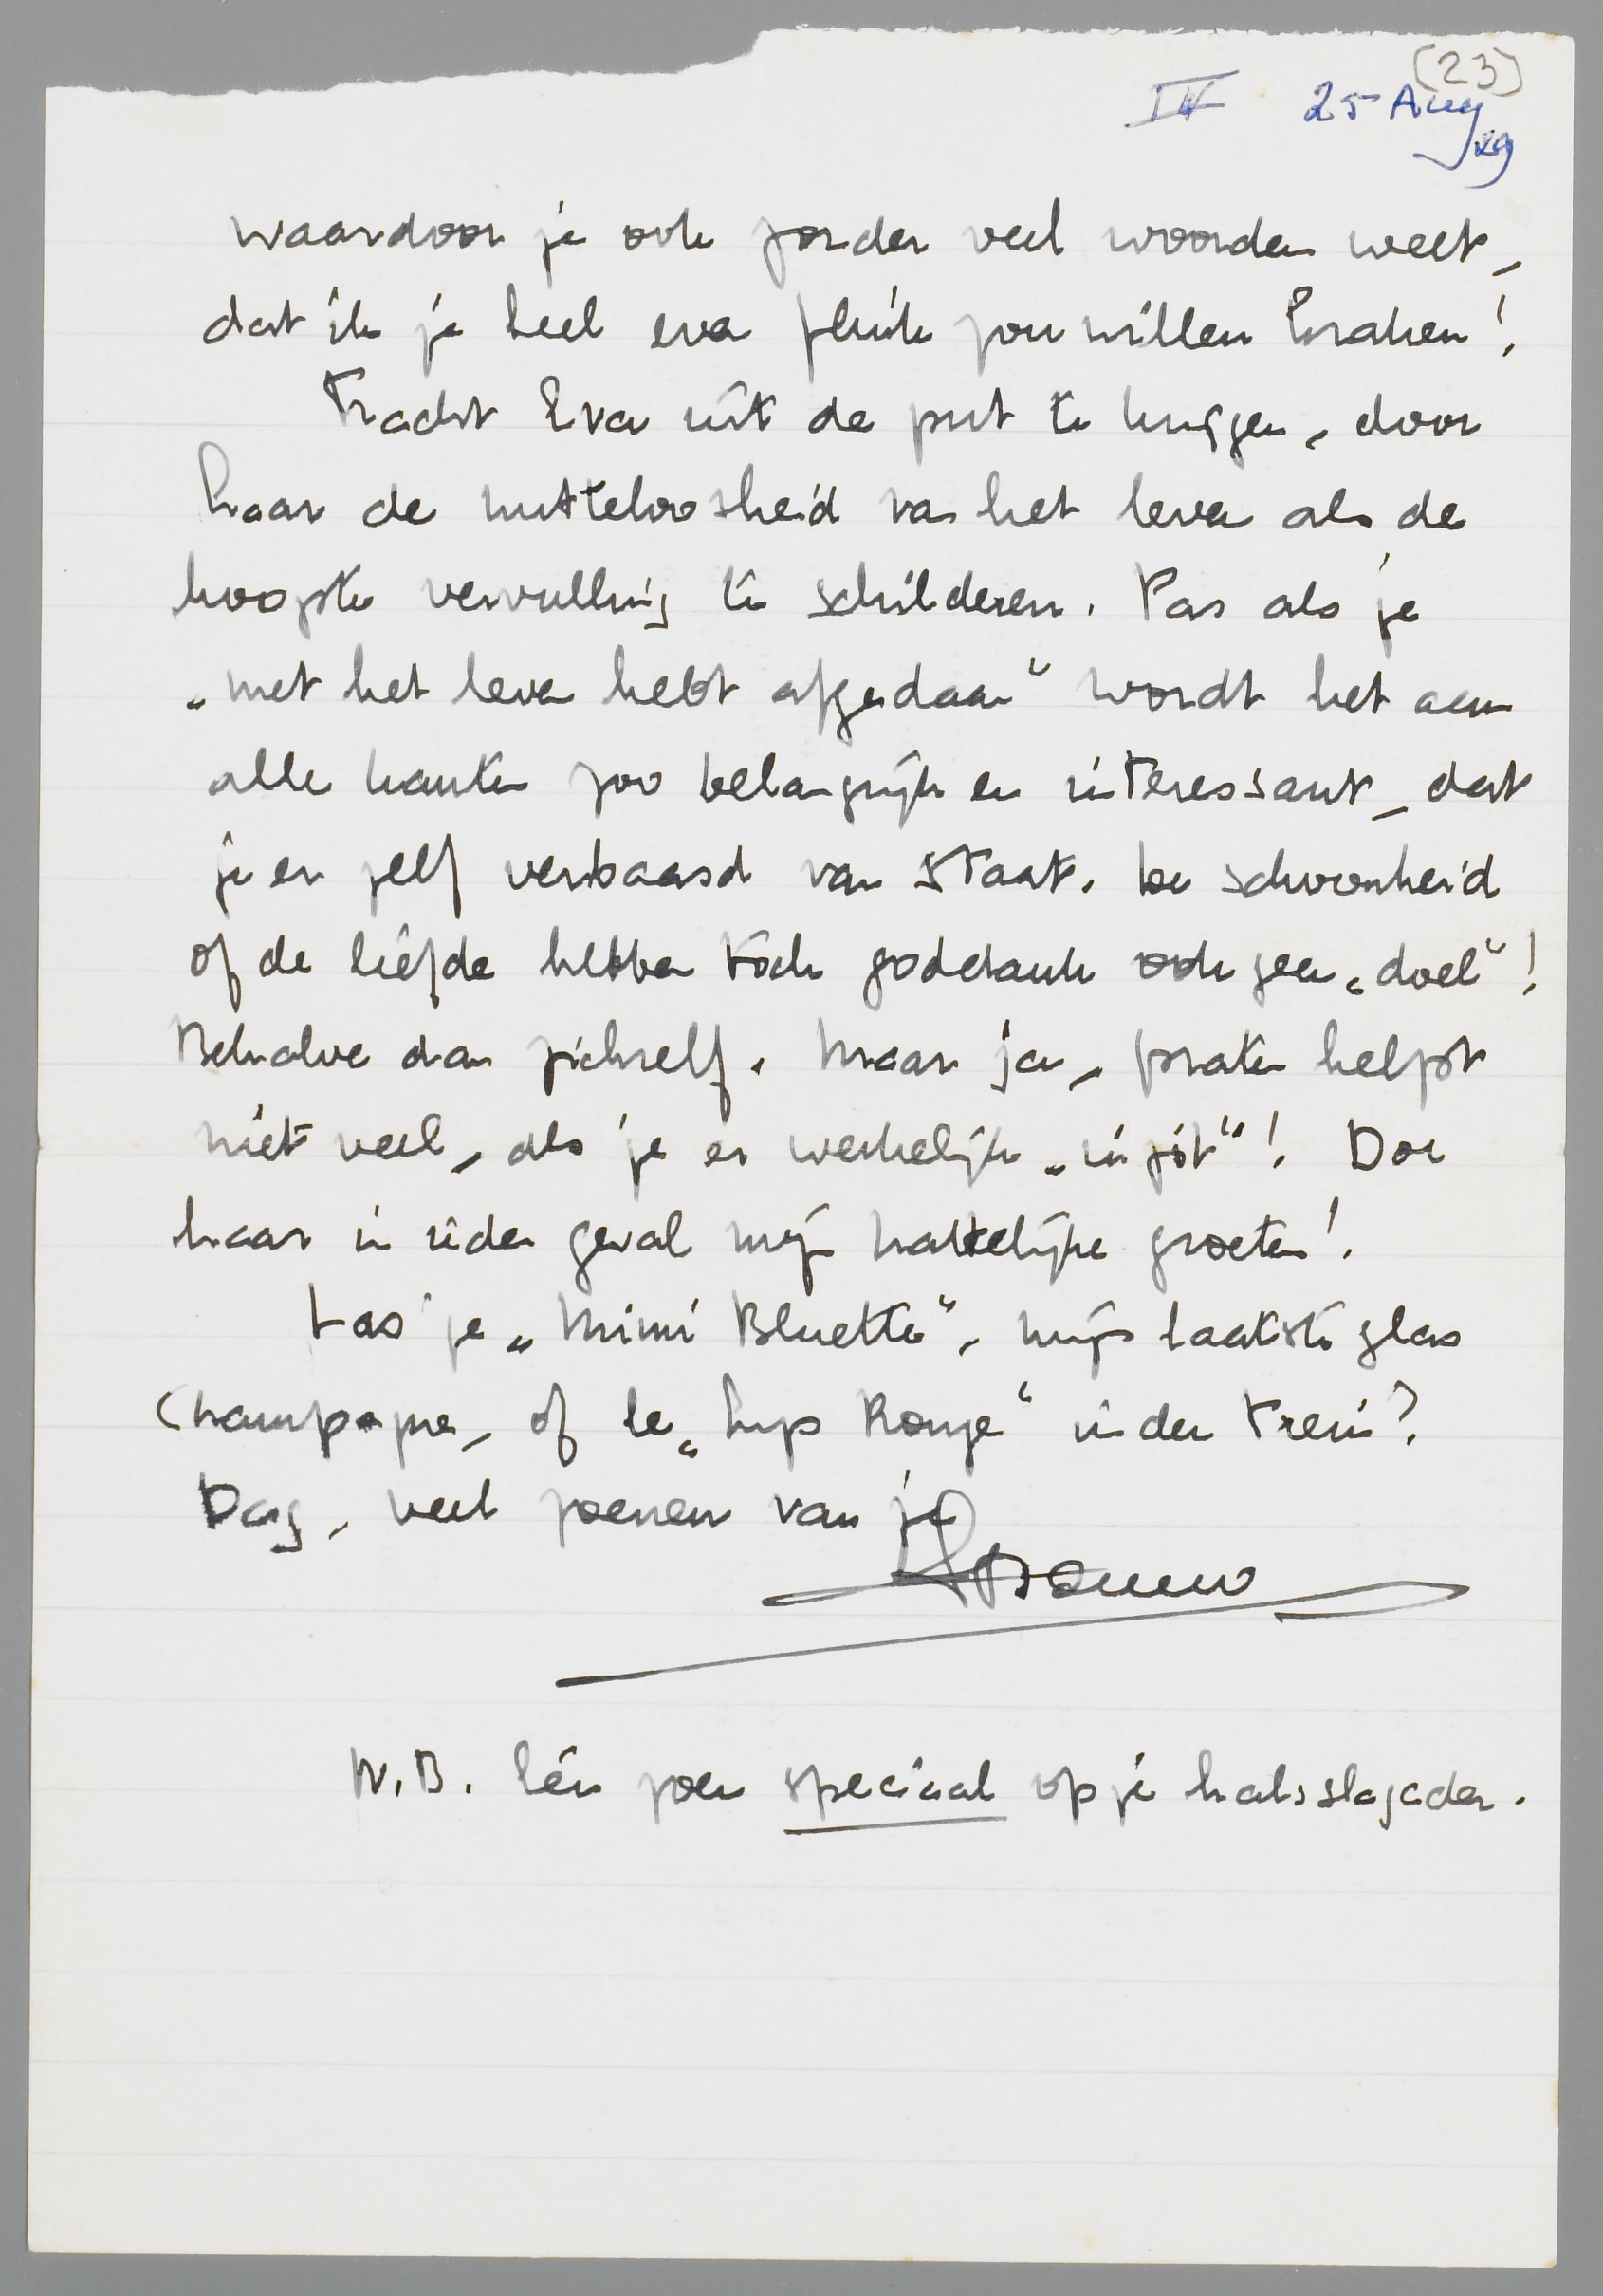 (23)
IV 25 Aug
29
waardoor je ook zonder veel woorden weet,
dat ik je heel even flink zou willen kraken!
Tracht Eva uit de put te krijgen, door
haar de nutteloosheid van het leven als de
hoogste vervulling te schilderen. Pas als je
„met het leven hebt afgedaan" wordt het aan
alle kanten zoo belangrijk en interessant, dat
je er zelf verbaasd van staat. De schoonheid
of de liefde hebben toch goddank ook geen „doel"!
Behalve dan zichzelf. Maar ja, praten helpt
niet veel, als je er werkelijk „in zit"! Doe
haar in ieder geval mijn hartelijke groeten!
Las je „Mimi Bluette", mijn laatste glas
Champagne, of le „Lys Rouge" in den trein?
Dag, veel zoenen van je
N.B. Eén zoen speciaal op je halsslagader.